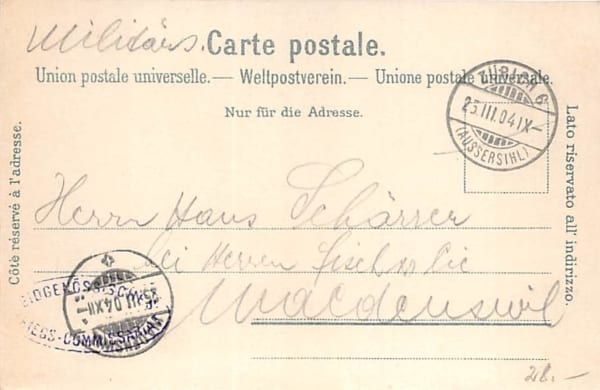 Militärs.
Carte postale.
Union postale universelle. — Weltpostverein. — Unione postale universale.
Nur für die Adresse.
Côté réservé à l'adresse.
Lato riservato all' indirizzo.
ZÜRICH 6
23.III.04.IX–
(AUSSERSIHL)
Herrn Hans Schärrer
bei Herren & Cie
Wädenswil
EIDGENÖSSISCHES
KRIEGS-COMMISSARIAT
III.04.XII
28.–